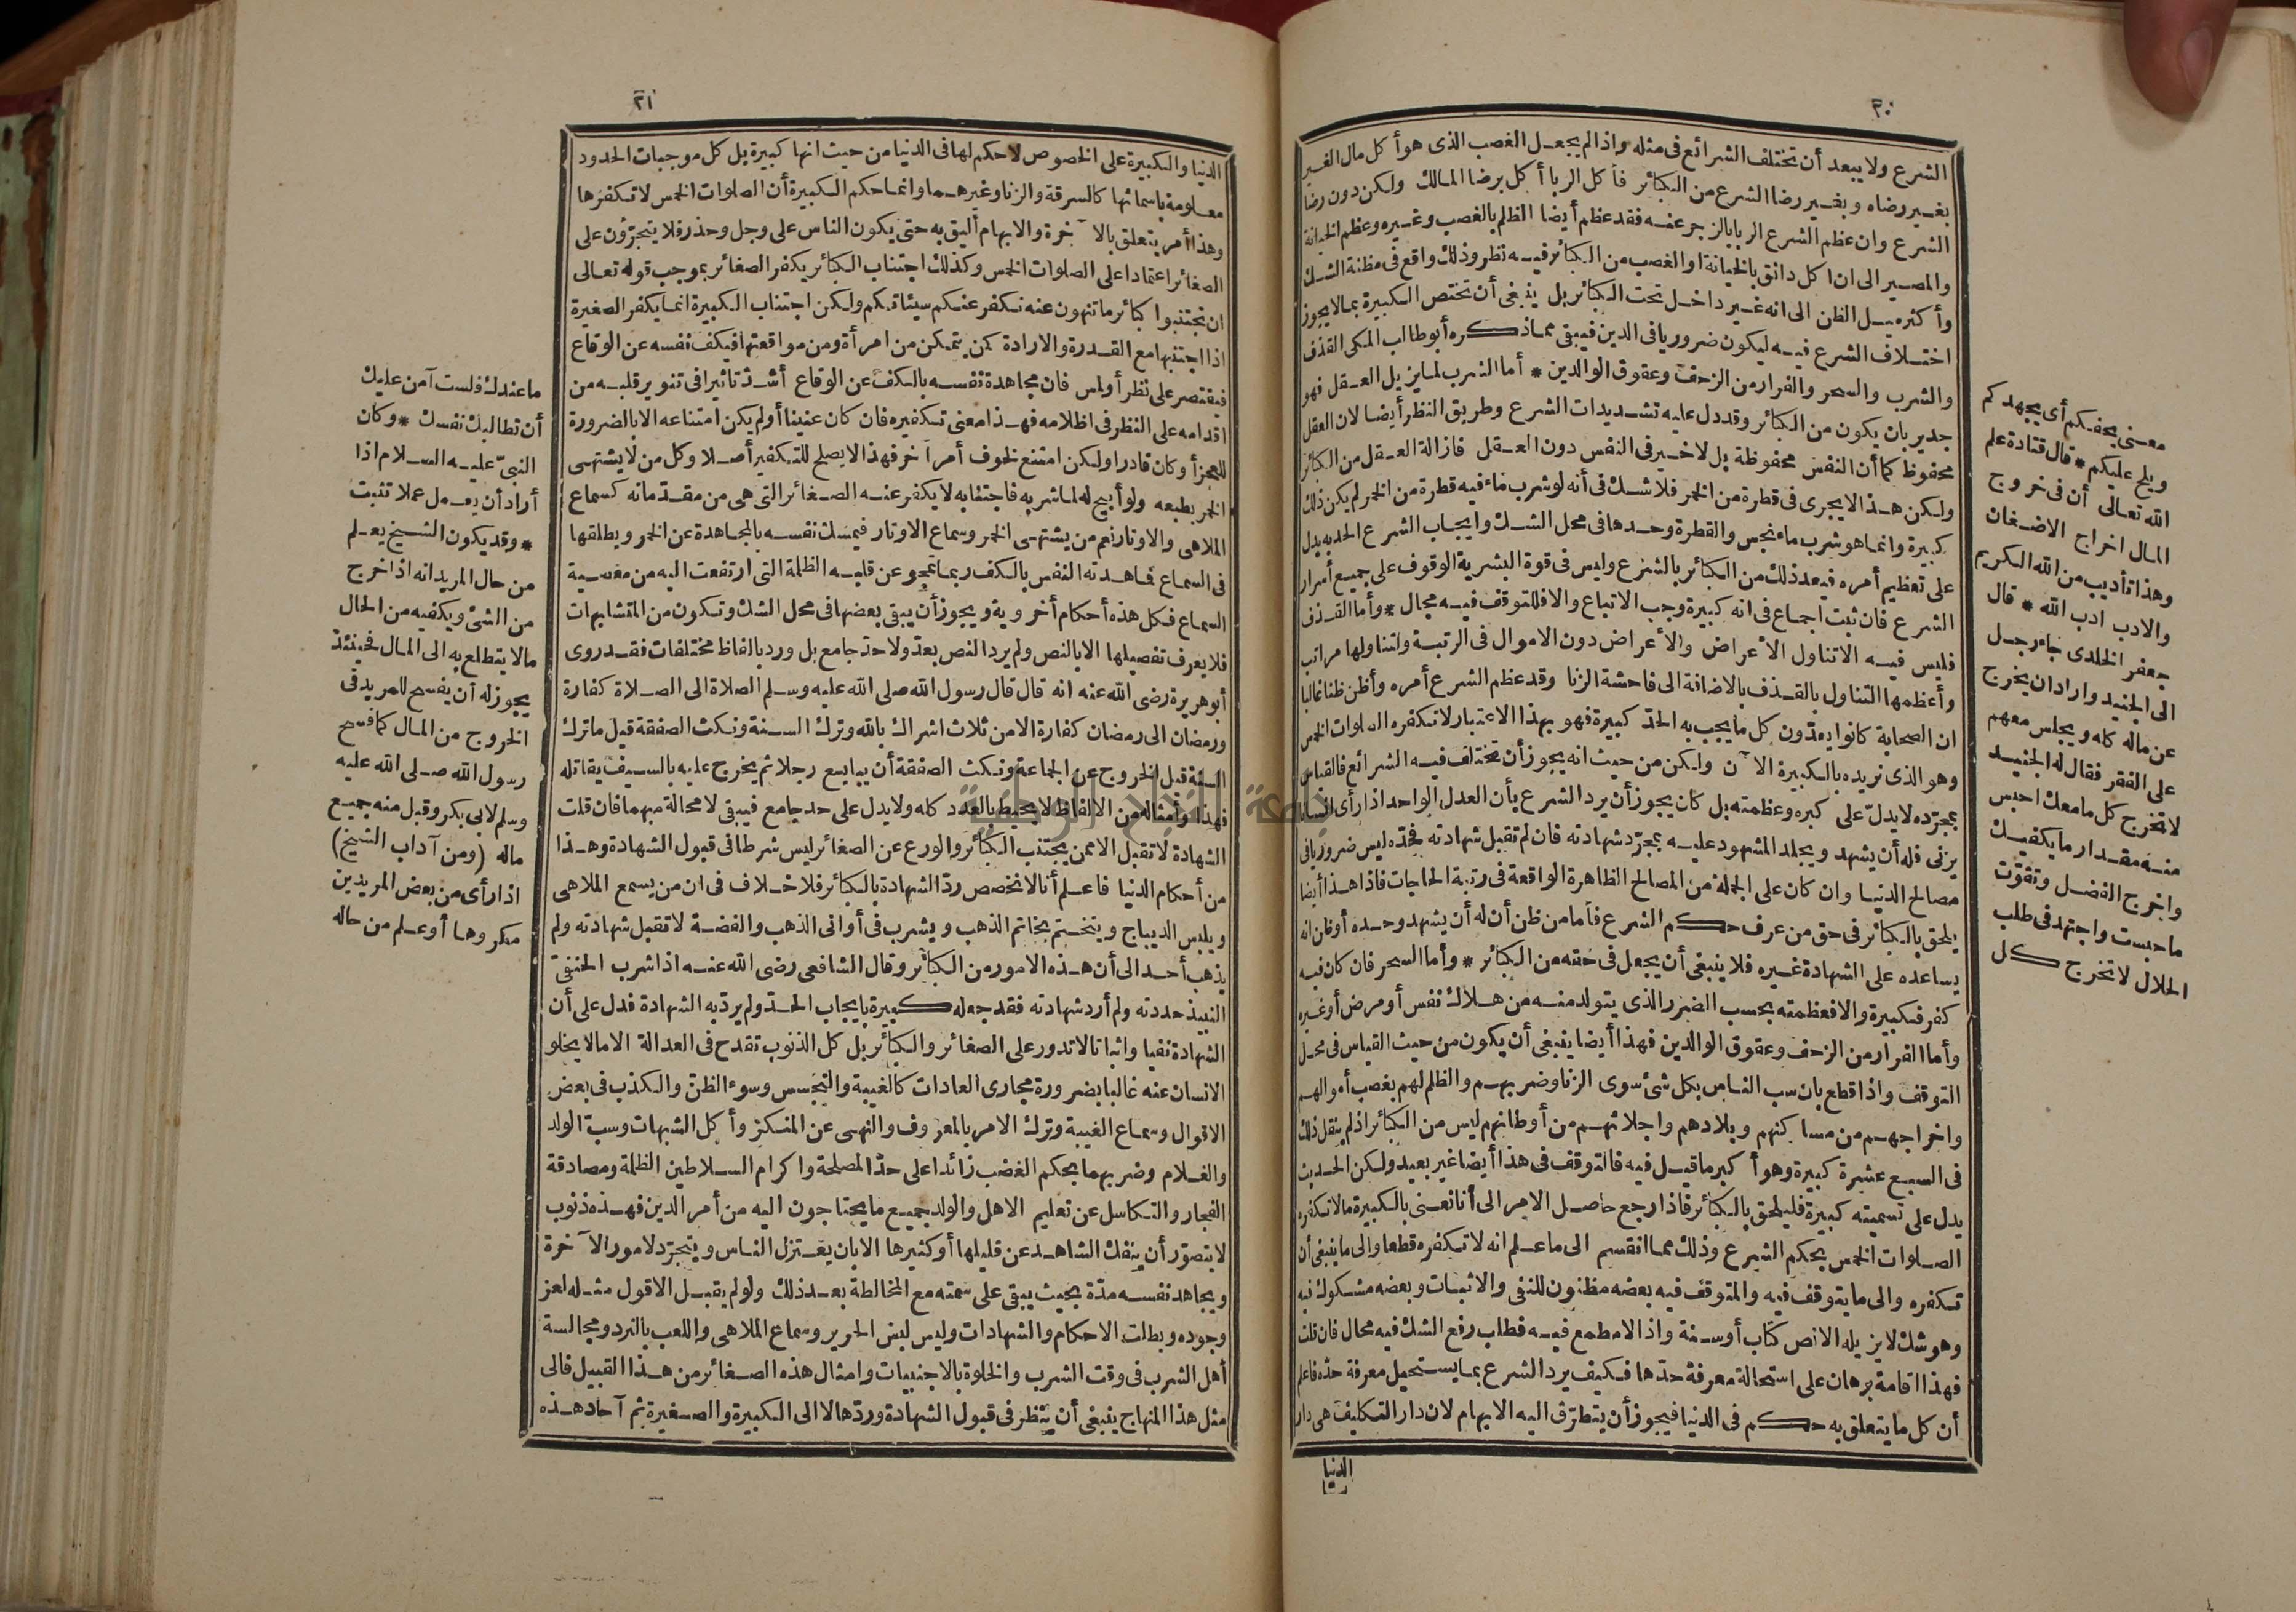 ٢٠
الشرع ولا يبعد أن تختلف الشرائع فى مثله واذا لم يجعل الغصب الذى هو أكل مال الغير
بغير رضاه وبغير رضا الشرع من الكبائر فأكل الربا أكل برضا المالك ولكن دون رضا
الشرع وان عظم الشرع الربا بالزجر عنه فقد عظم أيضا الظلم بالغصب وغيره وعظم الخيانة
والمصير الى ان اكل دانق بالخيانة او الغصب من الكبائر فيه نظر وذلك واقع فى مظنة الشك
وأكثر ميل الظن الى انه غير داخل تحت الكبائر بل ينبغى أن تختص الكبيرة بما لا يجوز
اختلاف الشرع فيه ليكون ضروريا فى الدين فيبقى مما ذكره أبو طالب المكى القذف
والشرب والسحر والفرار من الزحف وعقوق الوالدين * أما الشرب لما يزيل العقل فهو
جدير بان يكون من الكبائر وقد دل عليه تشديدات الشرع وطريق النظر أيضا لان العقل
محفوظ كما أن النفس محفوظة بل لا خير فى النفس دون العقل فازالة العقل من الكبائر
ولكن هذا لا يجرى فى قطرة من الخمر فلا شك فى أنه لو شرب ماء فيه قطرة من الخمر لم يكن ذلك
كبيرة وانما هو شرب ماء نجس والقطرة وحدها فى محل الشك وايجاب الشرع الحد به يدل
على تعظيم أمره فيعد ذلك من الكبائر بالشرع وليس فى قوة البشرية الوقوف على جميع أسرار
الشرع فان ثبت اجماع فى انه كبيرة وجب الاتباع والا فللتوقف فيه مجال * وأما القذف
فليس فيه الا تناول الأعراض والأعراض دون الاموال فى الرتبة ولتناولها مراتب
وأعظمها التناول بالقذف بالاضافة الى فاحشة الزنا وقد عظم الشرع أمره وأظن ظنا غالبا
ان الصحابة كانوا يعدّون كل ما يجب به الحدّ كبيرة فهو بهذا الاعتبار لا تكفره الصلوات الخمس
وهو الذى نريده بالكبيرة الآن ولكن من حيث انه يجوز أن تختلف فيه الشرائع فالقياس
بمجرّده لا يدلّ على كبره وعظمته بل كان يجوز أن يرد الشرع بأن العدل الواحد اذا رأى انسانا
يزنى فله أن يشهد ويجلد المشهود عليه بمجرّد شهادته فان لم تقبل شهادته فحدّه ليس ضروريا فى
مصالح الدنيا وان كان على الجملة من المصالح الظاهرة الواقعة فى رتبة الحاجات فاذا هذا أيضا
يلحق بالكبائر فى حق من عرف حكم الشرع فأما من ظن أن له أن يشهد وحده أو ظن انه
يساعده على الشهادة غيره فلا ينبغى أن يجعل فى حقه من الكبائر * وأما السحر فان كان فيه
كفر فكبيرة والا فعظمته بحسب الضرر الذى يتولد منه من هلاك نفس أو مرض أو غيره
وأما الفرار من الزحف وعقوق الوالدين فهذا أيضا ينبغى أن يكون من حيث القياس فى محل
التوقف واذا قطع بان سب الناس بكل شئ سوى الزنا وضربهم والظلم لهم بغصب أموالهم
واخراجهم من مساكنهم وبلادهم واجلائهم من أوطانهم ليس من الكبائر اذ لم ينقل ذلك
فى السبع عشرة كبيرة وهو أكبر ما قيل فيه فالتوقف فى هذا أيضا غير بعيد ولكن الحديث
يدل على تسميته كبيرة فليلحق بالكبائر فاذا رجع حاصل الامر الى أنا نعنى بالكبيرة ما لا تكفره
الصلوات الخمس بحكم الشرع وذلك مما انقسم الى ما علم انه لا تكفره قطعا والى ما ينبغى أن
تكفره والى ما يتوقف فيه والمتوقف فيه بعضه مظنون للنفى والاثبات وبعضه مشكوك فيه
وهو شك لا يزيله الا نص كتاب أو سنة واذ لا مطمع فيه فطلب رفع الشك فيه محال فان قلت
فهذا اقامة برهان على استحالة معرفة حدّها فكيف يرد الشرع بما يستحيل معرفة حدّه فاعلم
أن كل ما يتعلق به حكم فى الدنيا فيجوز أن يتطرّق اليه الابهام لان دار التكليف هى دار
الدنيا
معنى يحفكم أى يجهدكم
ويلح عليكم * قال قتادة علم
الله تعالى أن فى خروج
المال اخراج الاضغان
وهذا تأديب من الله الكريم
والادب ادب الله * قال
جعفر الخلدى جاء رجل
الى الجنيد واراد ان يخرج
عن ماله كله ويجلس معهم
على الفقر فقال له الجنيد
لا تخرج كل ما معك احبس
منه مقدار ما يكفيك
واخرج الفضل وتقوّت
ما حبست واجتهد فى طلب
الحلال لا تخرج كل
٢١
الدنيا والكبيرة على الخصوص لا حكم لها فى الدنيا من حيث انها كبيرة بل كل موجبات الحدود
معلومة باسمائها كالسرقة والزنا وغيرهما وانما حكم الكبيرة أن الصلوات الخمس لا تكفرها
وهذا أمر يتعلق بالآخرة والابهام أليق به حتى يكون الناس على وجل وحذر فلا يتجرّؤن على
الصغائر اعتمادا على الصلوات الخمس وكذلك اجتناب الكبائر يكفر الصغائر بموجب قوله تعالى
ان تجتنبوا كبائر ما تنهون عنه نكفر عنكم سيئاتكم ولكن اجتناب الكبيرة انما يكفر الصغيرة
اذا اجتنبها مع القدرة والارادة كمن يتمكن من امرأة ومن مواقعتها فيكف نفسه عن الوقاع
فيقتصر على نظر أو لمس فان مجاهدة نفسه بالكف عن الوقاع أشدّ تاثيرا فى تنوير قلبه من
اقدامه على النظر فى اظلامه فهذا معنى تكفيره فان كان عنينا أو لم يكن امتناعه الا بالضرورة
للعجز أو كان قادرا ولكن امتنع لخوف أمر آخر فهذا لا يصلح للتكفير أصلا وكل من لا يشتهى
الخمر بطبعه ولو أبيح له لما شربه فاجتنابه لا يكفر عنه الصغائر التى هى من مقدّماته كسماع
الملاهى والاوتار نعم من يشتهى الخمر وسماع الاوتار فيمسك نفسه بالمجاهدة عن الخمر ويطلقها
فى السماع فمجاهدته النفس بالكف ربما تمحو عن قلبه الظلمة التى ارتفعت اليه من معصية
السماع فكل هذه أحكام أخروية ويجوز أن يبقى بعضها فى محل الشك وتكون من المتشابهات
فلا يعرف تفصيلها الا بالنص ولم يرد النص بعدّ ولا حدّ جامع بل ورد بالفاظ مختلفات فقد روى
أبو هريرة رضى الله عنه انه قال قال رسول الله صلى الله عليه وسلم الصلاة الى الصلاة كفارة
ورمضان الى رمضان كفارة الا من ثلاث اشراك بالله وترك السنة ونكث الصفقة قيل ما ترك
السنة قيل الخروج عن الجماعة ونكث الصفقة أن يبايع رجلا ثم يخرج عليه بالسيف يقاتله
فهذا وأمثاله من الالفاظ لا يحيط بالعدد كله ولا يدل على حد جامع فيبقى لا محالة مبهما فان قلت
الشهادة لا تقبل الا ممن يجتنب الكبائر والورع عن الصغائر ليس شرطا فى قبول الشهادة وهذا
من أحكام الدنيا فاعلم أنا لا نخصص ردّ الشهادة بالكبائر فلا خلاف فى ان من يسمع الملاهى
ويلبس الديباج ويتختم بخاتم الذهب ويشرب فى أوانى الذهب والفضة لا تقبل شهادته ولم
يذهب أحد الى أن هذه الامور من الكبائر وقال الشافعى رضى الله عنه اذا شرب الحنفىّ
النبيذ حددته ولم أرد شهادته فقد جعله كبيرة بايجاب الحدّ ولم يردّ به الشهادة فدل على أن
الشهادة نفيا واثباتا لا تدور على الصغائر والكبائر بل كل الذنوب تقدح فى العدالة الا ما لا يخلو
الانسان عنه غالبا بضرورة مجارى العادات كالغيبة والتجسس وسوء الظنّ والكذب فى بعض
الاقوال وسماع الغيبة وترك الامر بالمعروف والنهى عن المنكر وأكل الشبهات وسبّ الولد
والغلام وضربهما بحكم الغضب زائدا على حدّ المصلحة واكرام السلاطين الظلمة ومصادقة
الفجار والتكاسل عن تعليم الاهل والولد جميع ما يحتاجون اليه من أمر الدين فهذه ذنوب
لا يتصوّر أن ينفك الشاهد عن قليلها أو كثيرها الا بان يعتزل الناس ويتجرّد لامور الآخرة
ويجاهد نفسه مدّة بحيث يبقى على سمته مع المخالطة بعد ذلك ولو لم يقبل الا قول مثله لعز
وجوده وبطلت الاحكام والشهادات وليس لبس الحرير وسماع الملاهى واللعب بالنرد ومجالسة
أهل الشرب فى وقت الشرب والخلوة بالاجنبيات وامثال هذه الصغائر من هذا القبيل فالى
مثل هذا المنهاج ينبغى أن ينظر فى قبول الشهادة وردّها لا الى الكبيرة والصغيرة ثم آحاد هذه
ما عندك فلست آمن عليك
أن تطالبك نفسك * وكان
النبىّ عليه السلام اذا
أراد أن يعمل عملا تثبت
* وقد يكون الشيخ يعلم
من حال المريد انه اذا خرج
من الشئ ويكفيه من الحال
ما لا يتطلع به الى المال فحينئذ
يجوز له أن يفسح للمريد فى
الخروج من المال كما فسح
رسول الله صلى الله عليه
وسلم لابى بكر وقبل منه جميع
ماله (ومن آداب الشيخ)
اذا رأى من بعض المريدين
مكروها أو علم من حاله
جامعة النجاح الوطنية